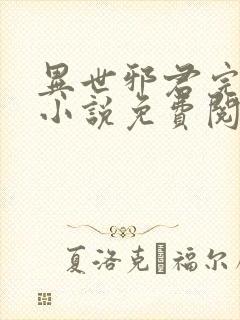 異世邪君完
小說免費閱
夏洛克 福尔